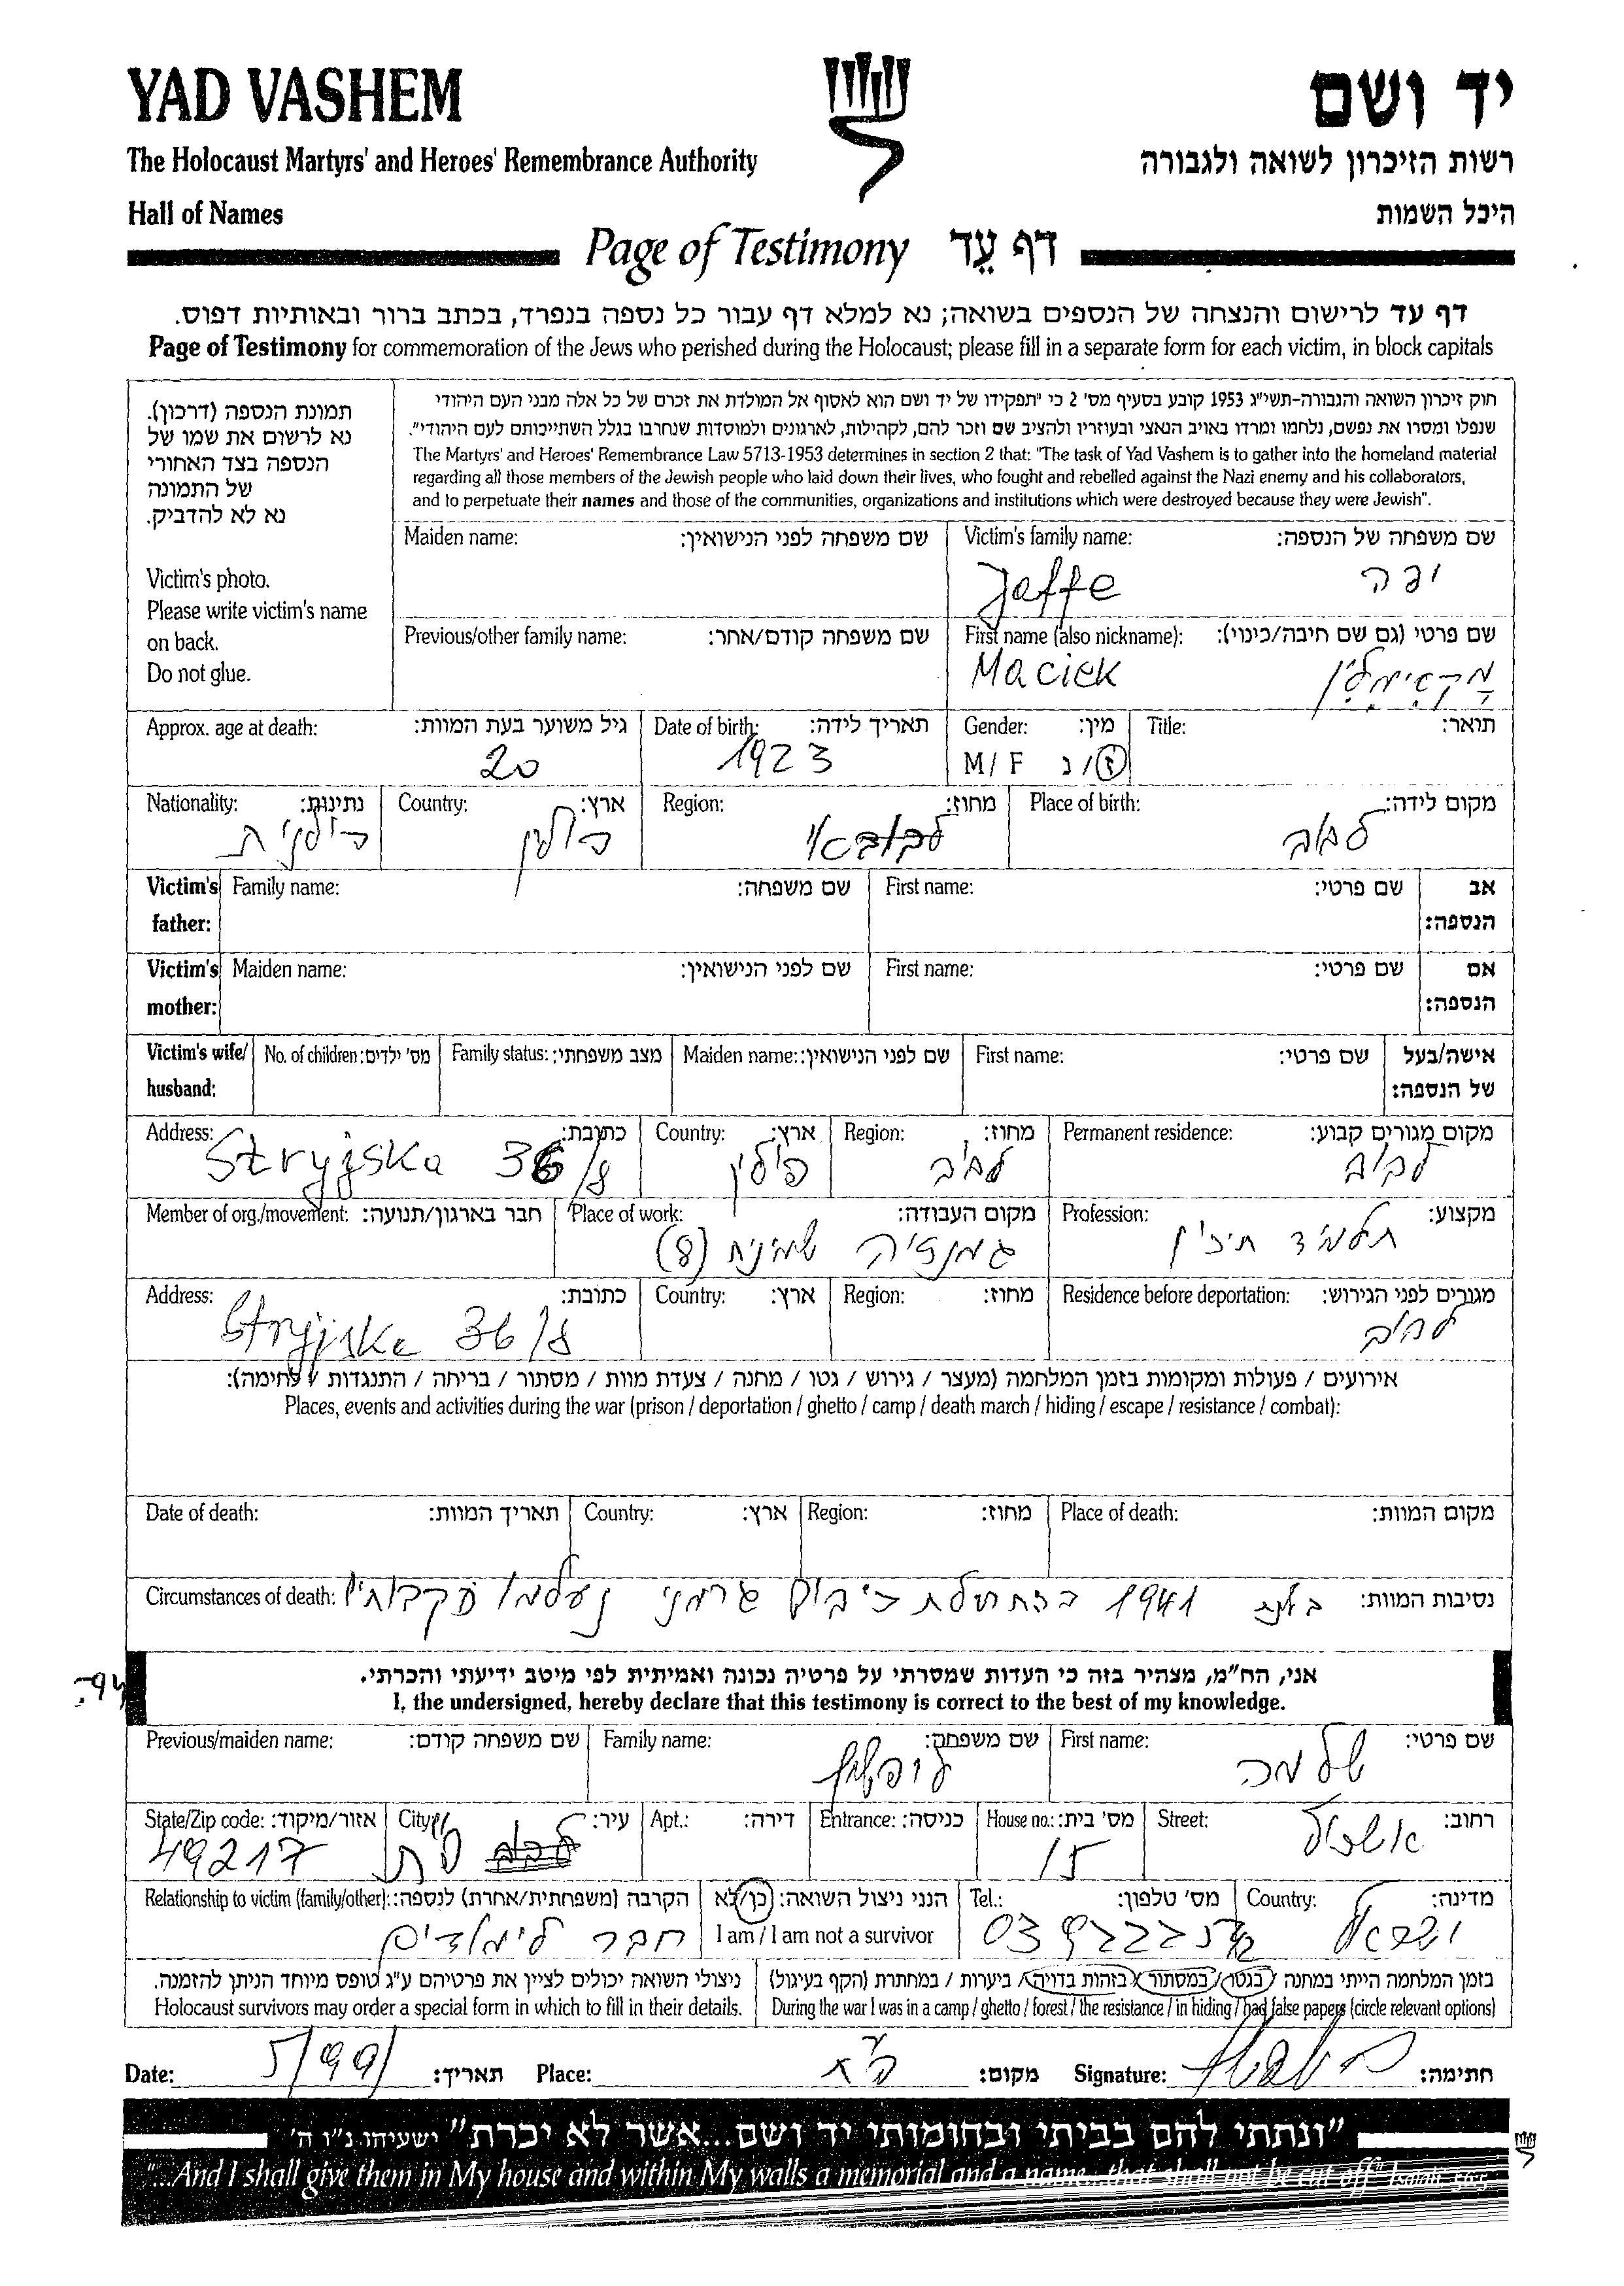 YAD VASHEM יד ושם
The Holocaust Martyrs' and Heroes' Remembrance Authority רשות הזיכרון לשואה ולגבורה
Hall of Names היכל השמות
Page of Testimony דף עֵד
דף עד לרישום והנצחה של הנספים בשואה; נא למלא דף עבור כל נספה בנפרד, בכתב ברור ובאותיות דפוס.
Page of Testimony for commemoration of the Jews who perished during the Holocaust; please fill in a separate form for each victim, in block capitals
תמונת הנספה (דרכון).
נא לרשום את שמו של
הנספה בצד האחורי
של התמונה
נא לא להדביק.
Victim's photo.
Please write victim's name
on back.
Do not glue.
חוק זיכרון השואה והגבורה-תשי"ג 1953 קובע בסעיף מס' 2 כי "תפקידו של יד ושם הוא לאסוף אל המולדת את זכרם של כל אלה מבני העם היהודי
שנפלו ומסרו את נפשם, נלחמו ומרדו באויב הנאצי ובעוזריו ולהציב שם וזכר להם, לקהילות, לארגונים ולמוסדות שנחרבו בגלל השתייכותם לעם היהודי".
The Martyrs' and Heroes' Remembrance Law 5713-1953 determines in section 2 that: "The task of Yad Vashem is to gather into the homeland material
regarding all those members of the Jewish people who laid down their lives, who fought and rebelled against the Nazi enemy and his collaborators,
and to perpetuate their names and those of the communities, organizations and institutions which were destroyed because they were Jewish".
Maiden name: שם משפחה לפני הנישואין: Victim's family name: שם משפחה של הנספה:
Jaffe יפה
Previous/other family name: שם משפחה קודם/אחר: First name (also nickname): שם פרטי (גם שם חיבה/כינוי):
Maciek
Approx. age at death: גיל משוער בעת המוות: Date of birth: תאריך לידה: Gender: מין: Title: תואר:
20 1923 M/ F ז/נ
Nationality: נתינות: Country: ארץ: Region: מחוז: Place of birth: מקום לידה:
פולנית פולין לבוב
Victim's father: Family name: שם משפחה: First name: שם פרטי: אב הנספה:
Victim's mother: Maiden name: שם לפני הנישואין: First name: שם פרטי: אם הנספה:
Victim's wife/ husband: No. of children: מס' ילדים: Family status: מצב משפחתי: Maiden name: שם לפני הנישואין: First name: שם פרטי: אישה/בעל של הנספה:
Address: כתובת: Country: ארץ: Region: מחוז: Permanent residence: מקום מגורים קבוע:
Stryjska 36/8 פולין לבוב לבוב
Member of org./movement: חבר בארגון/תנועה: Place of work: מקום העבודה: Profession: מקצוע:
גמנסיה שמינית (8) תלמיד תיכון
Address: כתובת: Country: ארץ: Region: מחוז: Residence before deportation: מגורים לפני הגירוש:
Stryjska 36/8 לבוב
אירועים / פעולות ומקומות בזמן המלחמה (מעצר / גירוש / גטו / מחנה / צעדת מוות / מסתור / בריחה / התנגדות / לחימה):
Places, events and activities during the war (prison / deportation / ghetto / camp / death march / hiding / escape / resistance / combat):
Date of death: תאריך המוות: Country: ארץ: Region: מחוז: Place of death: מקום המוות:
Circumstances of death: נסיבות המוות:
1941 בהתחלת כיבוש גרמני נעלמו עקבותיו
אני, הח"מ, מצהיר בזה כי העדות שמסרתי על פרטיה נכונה ואמיתית לפי מיטב ידיעתי והכרתי.
I, the undersigned, hereby declare that this testimony is correct to the best of my knowledge.
Previous/maiden name: שם משפחה קודם: Family name: שם משפחה: First name: שם פרטי:
שלמה
State/Zip code: אזור/מיקוד: City: עיר: Apt.: דירה: Entrance: כניסה: House no.: מס' בית: Street: רחוב:
49217 15 אשכול
Relationship to victim (family/other): הקרבה (משפחתית/אחרת) לנספה: הנני ניצול השואה: כן/לא Tel.: מס' טלפון: Country: מדינה:
חבר לימודים I am / I am not a survivor ישראל
ניצולי השואה יכולים לציין את פרטיהם ע"ג טופס מיוחד הניתן להזמנה. בזמן המלחמה הייתי במחנה / בגטו / במסתור / בזהות בדויה / ביערות / במחתרת (הקף בעיגול)
Holocaust survivors may order a special form in which to fill in their details. During the war I was in a camp / ghetto / forest / the resistance / in hiding / had false papers (circle relevant options)
Date: 5/99 תאריך: Place: מקום: Signature: חתימה:
"ונתתי להם בביתי ובחומותי יד ושם...אשר לא יכרת" ישעיהו נ"ו ה'
"...And I shall give them in My house and within My walls a memorial and a name...that shall not be cut off" Isaiah 56:5